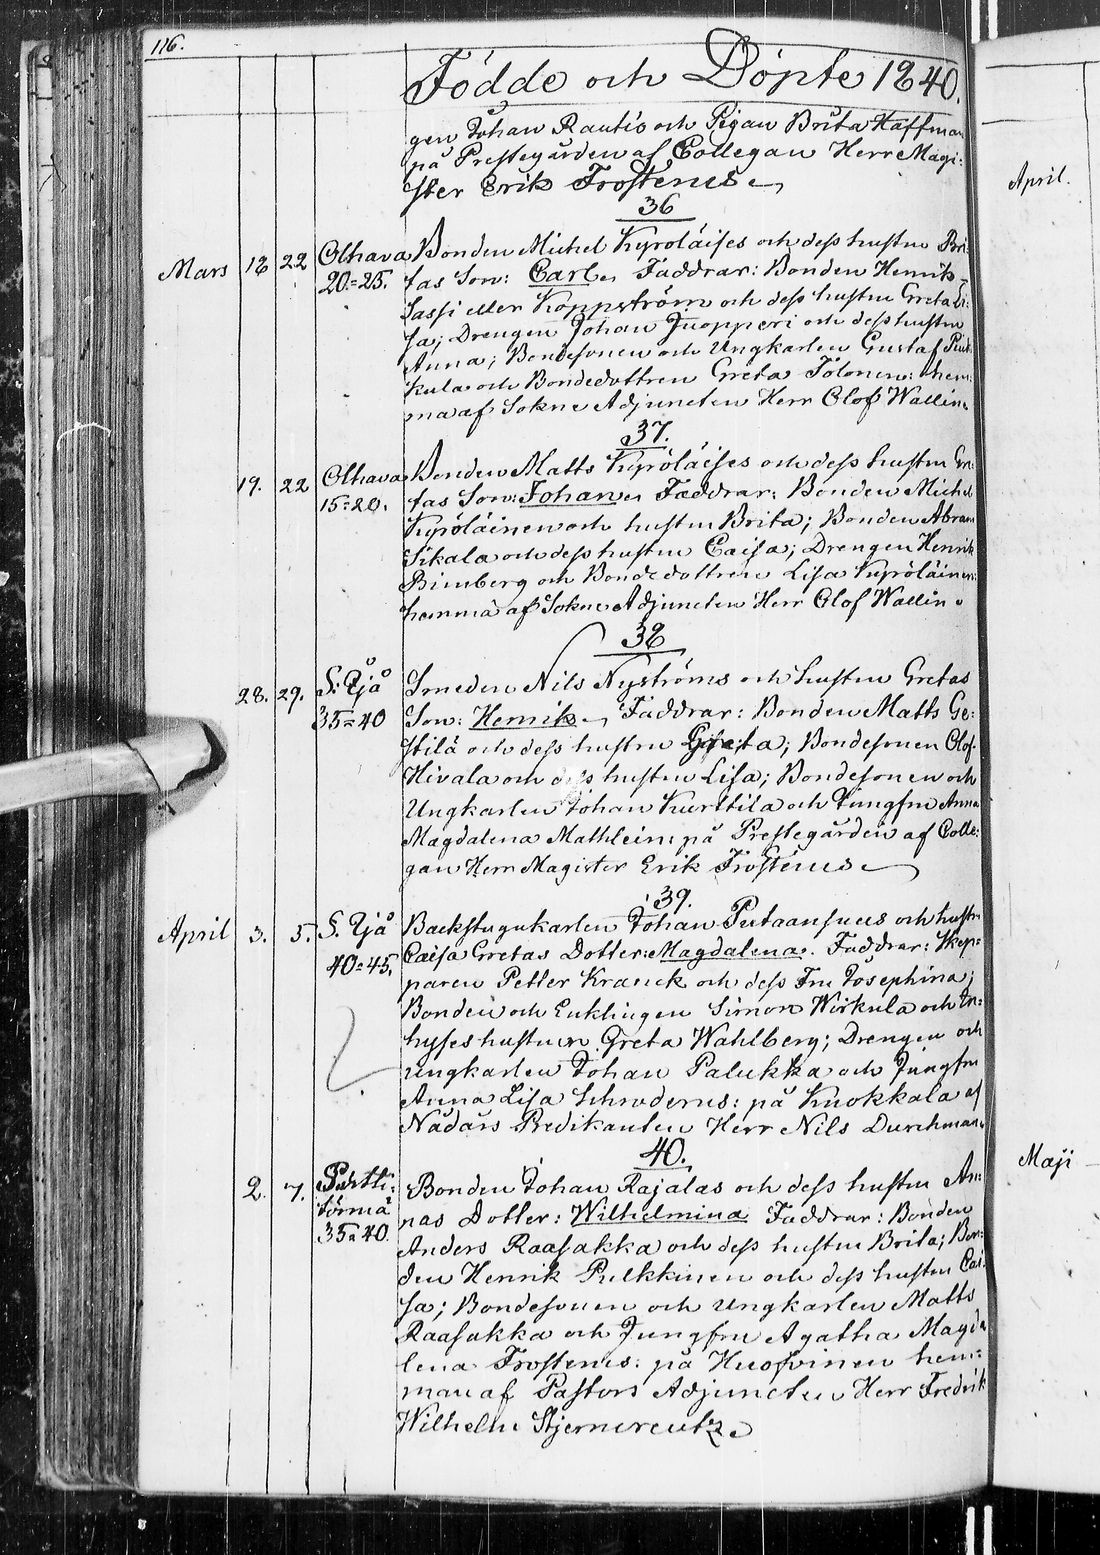 116.
Födde och Döpte 1840.
gen Johan Rautio och Pigan Brita Haffman
på Prestegården af Collegan Herr Magi-
ster Erik Frosterus
36
Mars 18 22 Olhava 20=25. Bonden Michel Kyröläises och dess hustru Bri-
tas Son: Carl Faddrar: Bonden Henrik
Sassi eller Koppström och dess hustru Greta Li-
sa; Drengen Johan Juopperi och dess hustru
Anna; Bondesonen och Ungkarlen Gustaf
kula och Bondedottren Greta Tolonen: hem-
ma af Sokne Adjuncten Herr Olof Wallin
37.
19. 22 Olhava 15=20. Bonden Matts Kyröläises och dess hustru Gre-
tas Son: Johan Faddrar: Bonden Michel
Kyröläinen och hustru Brita; Bonden Abram
Sikala och dess hustru Caisa; Drengen Henrik
Bimberg och Bondedottren Lisa Kyröläinen:
hemma af Sokne Adjuncten Herr Olof Wallin
38
28. 29. S. Ijå 35=40 Smeden Nils Nyströms och hustru Gretas
Son: Henrik Faddrar: Bonden Matts Ge-
stilä och dess hustru Greta; Bondesonen Olof
Hivala och dess hustru Lisa; Bondesonen och
Ungkarlen Johan Kurttila och Jungfru Anna
Magdalena Mathlein: på Prestegården af Colle-
gan Herr Magister Erik Frosterus
39.
April 3. 5. S. Ijå 40=45. Backstugukarlen Johan Putaansuus och hustru
Caisa Gretas Dotter: Magdalena. Faddrar: Skep-
paren Petter Kranck och dess Fru Josephina;
Bonden och Enklingen Simon Wirkula och In-
hyses hustrun Greta Wahlberg; Drengen och
Ungkarlen Johan Palukka och Jungfru
Anna Lisa Schroderus: på Kuokkala af
Nådårs Predikanten Herr Nils Durchman
40.
2. 7. törmä 35=40. Bonden Johan Rajalas och dess hustru An-
nas Dotter: Wilhelmina Faddrar: Bonden
Anders Raasakka och dess hustru Brita; Bon-
den Henrik Pulkkinen och dess hustru Cai-
sa; Bondesonen och Ungkarlen Matts
Raasakka och Jungfru Agatha Magda
lena Frosterus: på Huosvinen hem-
man af Pastors Adjuncten Herr Fredrik
Wilhelm Stjerncreutz
April.
Maji